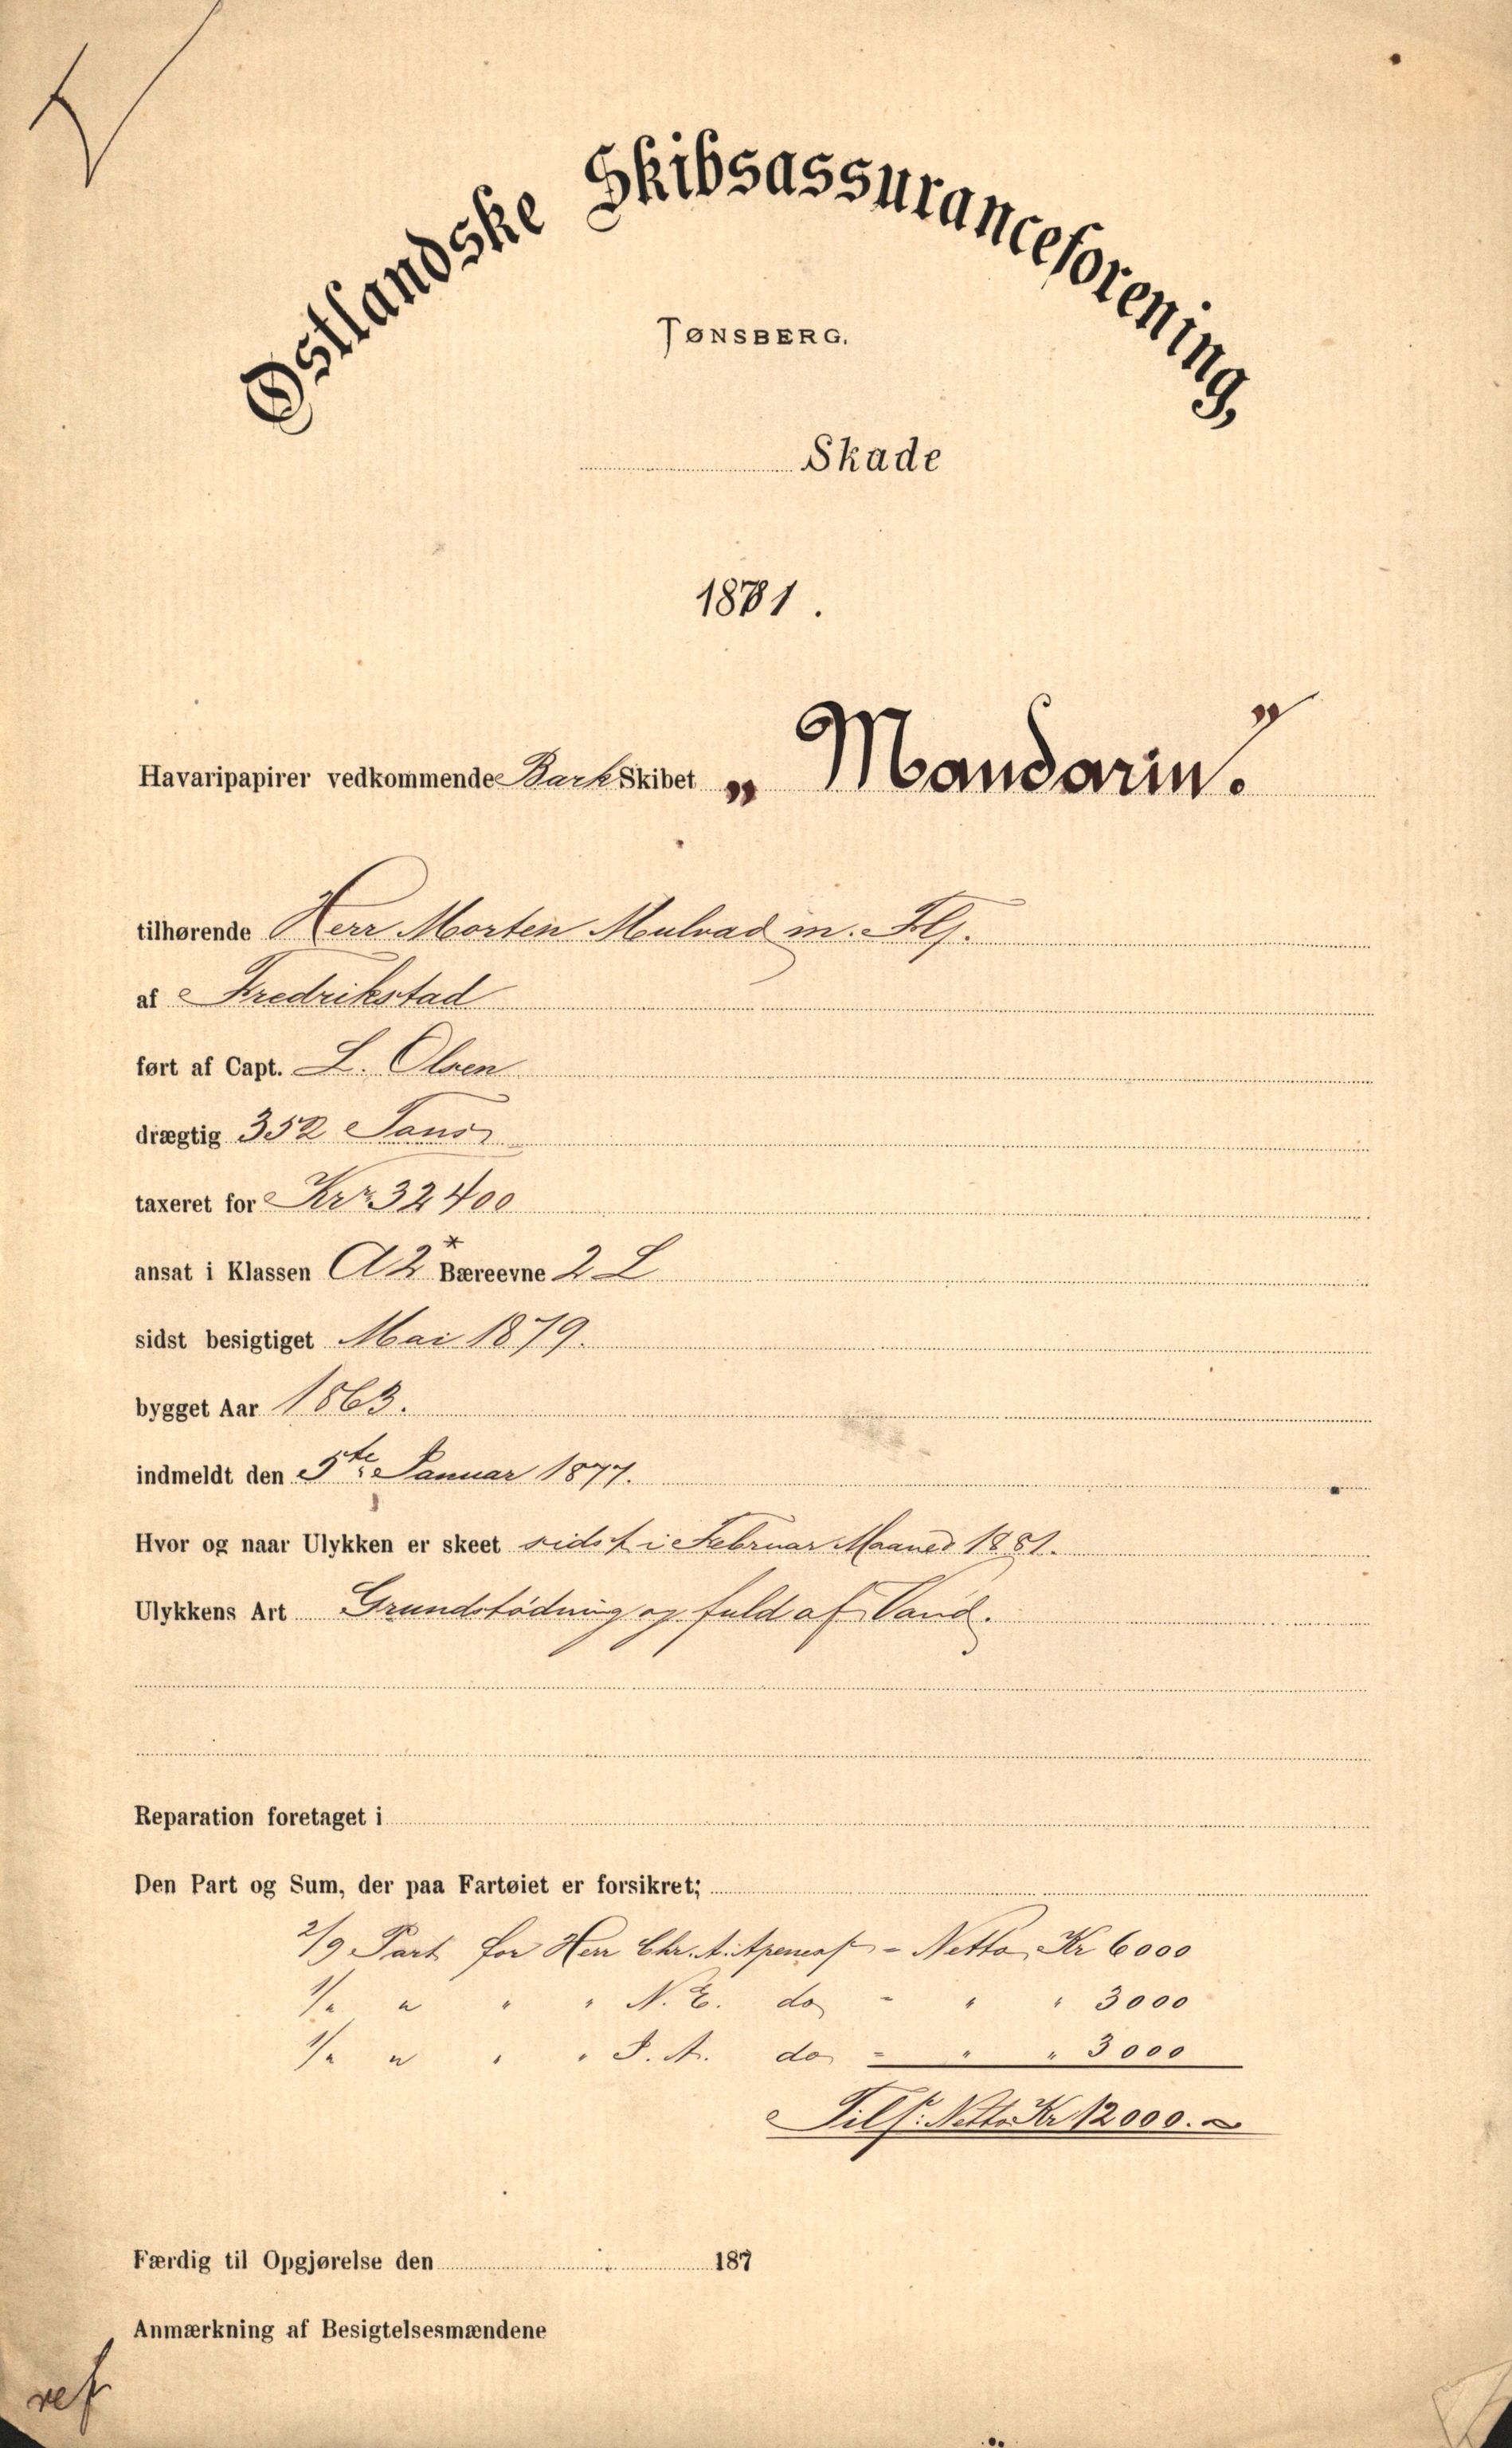 Østlandske Skibsassuranceforening,
TØNSBERG.
Skade
1881.
Havaripapirer vedkommende Bark Skibet „Mandarin."
tilhørende Herr Morten Mulvad m. Flg.
af Fredrikstad
ført af Capt. L. Olsen
drægtig 352 Tons
taxeret for Kr 32400
ansat i Klassen A2* Bæreevne 2 L
sidst besigtiget Mai 1879.
bygget Aar 1863.
indmeldt den 5te Januar 1877.
Hvor og naar Ulykken er skeet sidst i Februar Maaned 1881.
Ulykkens Art Grundstødning og fuld af Vand.
Reparation foretaget i
Den Part og Sum, der paa Fartøiet er forsikret;
2/9 Part for Herr Chr. A. - Netto Kr 6000
" " " N. E. do - " " 3000
" " " J. A. do - " " 3000
Tils: Netto Kr 12000.
Færdig til Opgjørelse den 187
Anmærkning af Besigtelsesmændene
ref